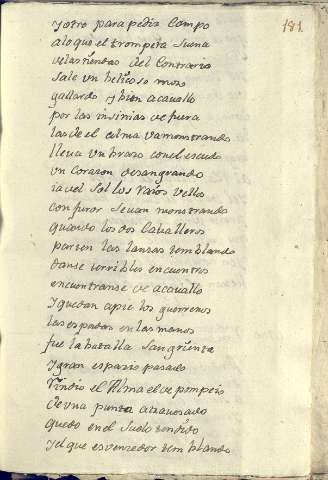 181
y otro para pedir Campo
a lo que el trompeta Suena
de las tiendas del Contrario
Sale Un belicoso moro
gallardo y bien acauallo
por las insinias de fuera
las de el alma Va monstrando
lleua Un brazo con el escudo
Un Corazon desangrando
ya del Sol los raios bellos
con furor Se uan monstrando
quando los dos Caballeros
parten las lanzas temblando
danse terribles encuentros
encuentranse de acauallo
y quedan apie los guerreros
las espadas en las manos
fue la batalla Sangrienta
y gran espazio pasado
Rindio el Alma el de pompeio
de Una punta atrauesado
quedo en el Suelo tendido
y el que es venzedor temblando